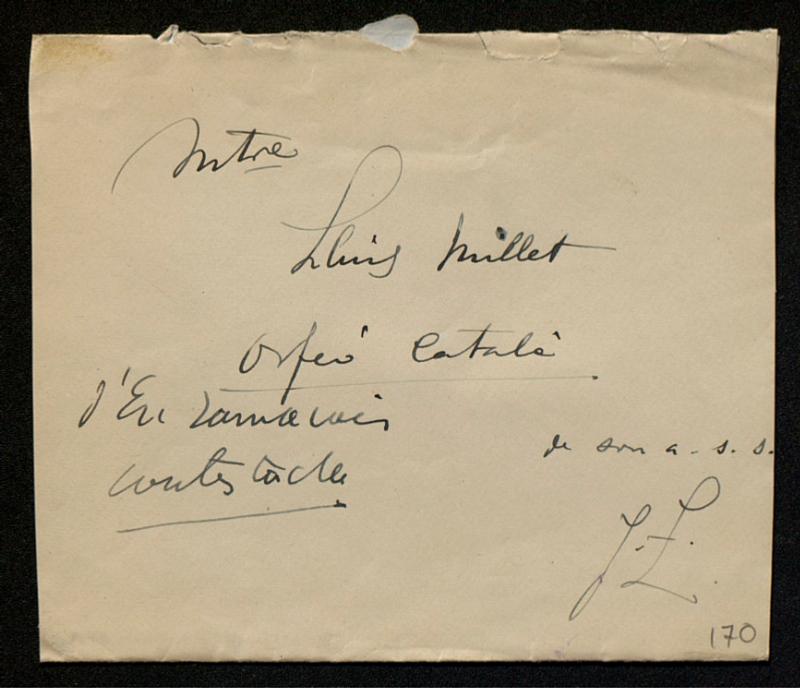 Mtre
Lluis Millet
Orfeó Català
d'En Zamacois
contestada
de son a. s. s.
J. Z.
170